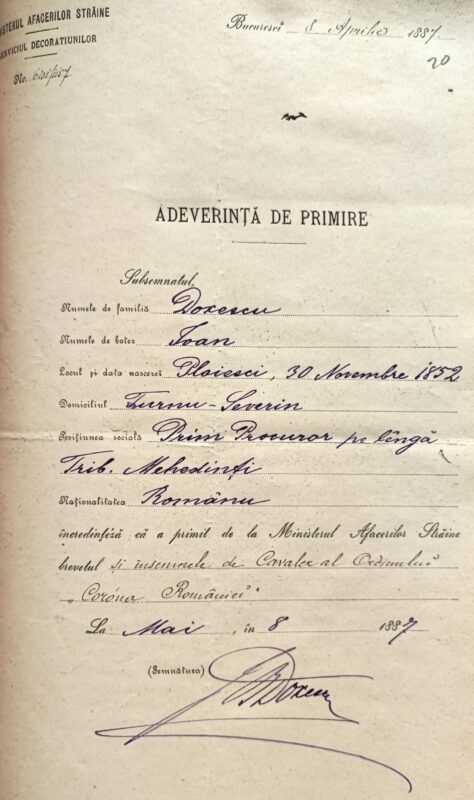 MINISTERUL AFACERILOR STRĂINE
SERVICIUL DECORAȚIUNILOR
No.
Bucuresci 8 Aprilie 1887.
20
ADEVERINȚĂ DE PRIMIRE
Subsemnatul,
Numele de familiă Doxescu
Numele de botez Ioan
Locul și data nascerei Ploiesci, 30 Novembre 1852
Domiciliul Turnu-Severin
Posițiunea socială Prim Procuror pe lîngă
Trib. Mehedinți
Naționalitatea Românu
încredințéză că a primit de la Ministerul Afacerilor Străine
brevetul și insemnele de Cavaler al Ordinului
„Coróna României"
La Mai, în 8 1887
(Semnătura) Doxescu